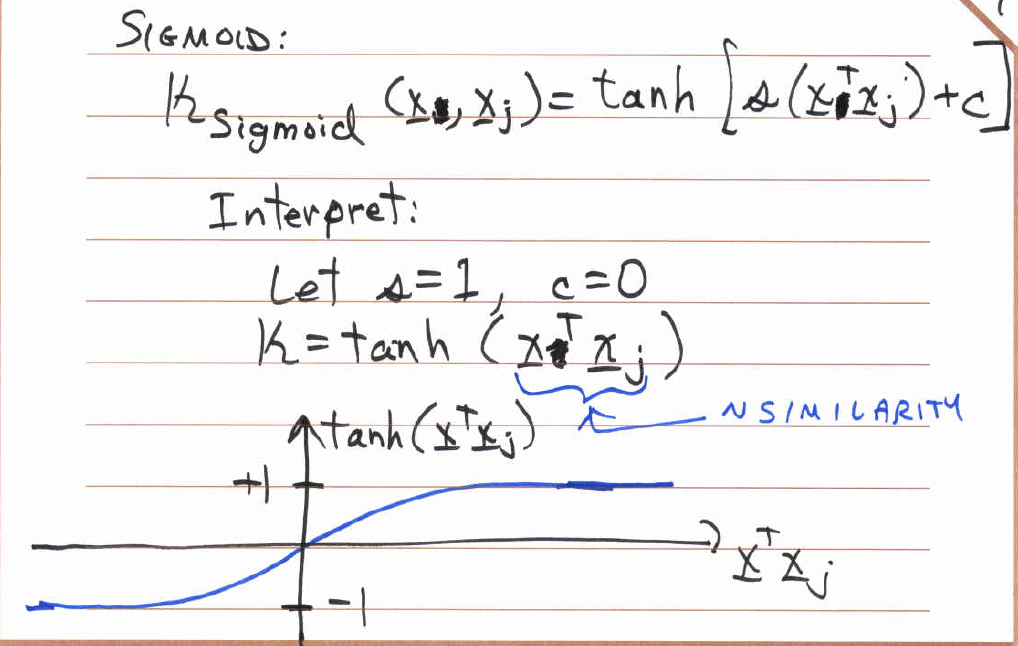 SIGMOID:
K_Sigmoid (x, x_j) = tanh [s(x^T x_j) + c]
Interpret:
Let s=1, c=0
K = tanh (x^T x_j)
~ SIMILARITY
tanh(x^T x_j)
+1
x^T x_j
-1